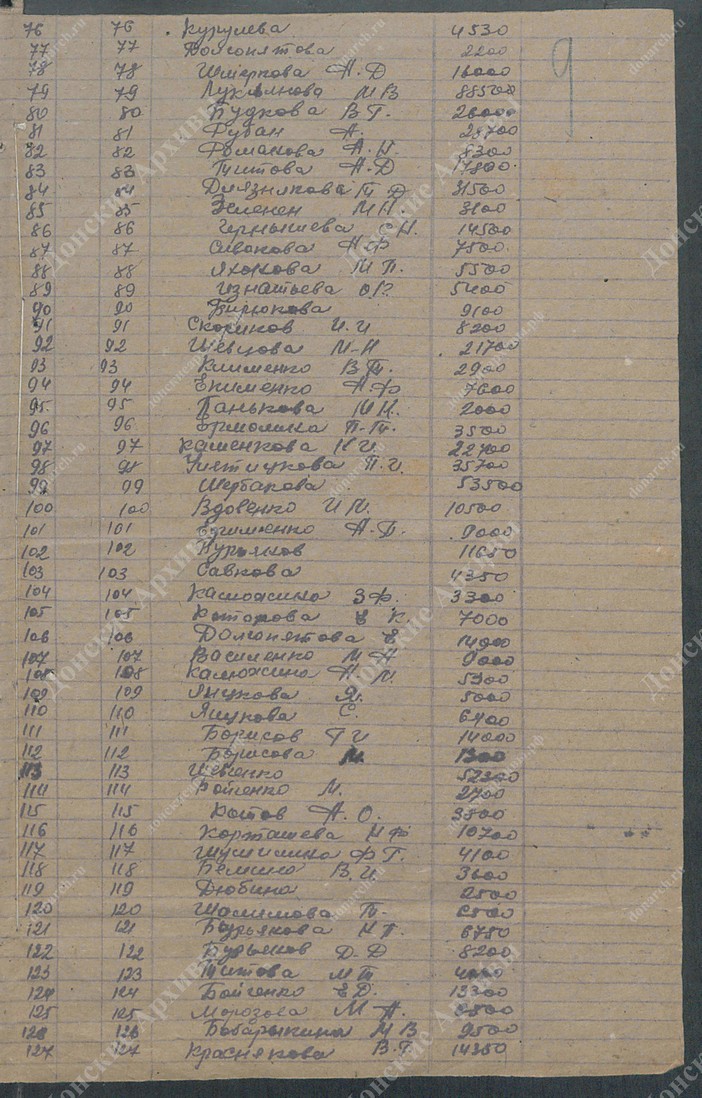 9
76 76 Курулева 4530
77 77 Долгопятова 2200
78 78 А.Д 16000
79 79 Лукьянова М В 88500
80 80 Будкова В Г. 26000
81 81 А. 28700
82 82 Фоманова А.Н. 8300
83 83 Титова А.Д 17800
84 84 Т Д 31500
85 85 Зеленен М Н 3100
86 86 Чернышева С Н. 14500
87 87 Сивакова А Ф 7500
88 88 М П. 5500
89 89 5400
90 90 Бирюкова 9100
91 91 Скориков И.И 8200
92 92 Шевцова М-Н 21700
93 93 Клименко В Т. 2900
94 94 Екименко А Ф 7600
95. 95 Панькова М Н. 2000
96 96 Ермолина П-Т. 3500
97 97 Каменкова Н И. 22700
98 98 П.И. 35700
99 99 Щербакова 53500
100 100 Вдовенко И М. 10500
101 101 Ефименко А-Д. 9000
102 102 11650
103 103 Савкова 4350
104 104 Камокина З Ф. 3300
105 105 Котарова Е К 7000
106 106 Долгопятова Е 14900
107 107 Василенко М 9000
108 108 5300
109 109 Яицкова Я. 5000
110 110 Яицкова С. 6400
111 111 Борисов Г И 14000
112 112 Борисова М. 1300
113 113 Шевченко
114 114 Бойченко М. 2700
115 115 Котов А. О. 3500
116 116 Карташева Н Ф 10700
117 117 Шушилина Ф Г. 4100
118 118 В. И. 3600
119 119 Дюбина 2500
120 120 Шалимова Т. 6500
121 121 Бурьякова Н П. 6750
122 122 Бурьянов Д-Д 8200
123 123 Титова М Т
124 124 Бойченко Е Д. 13300
125 125 Морозова М А.
126 126 Бабарыкина М В 9500
127 127 Краснякова В. Г 14350
Донские Архивы
donarch.ru